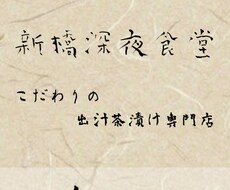 新橋深夜食堂
こだわりの
出汁茶漬け専門店